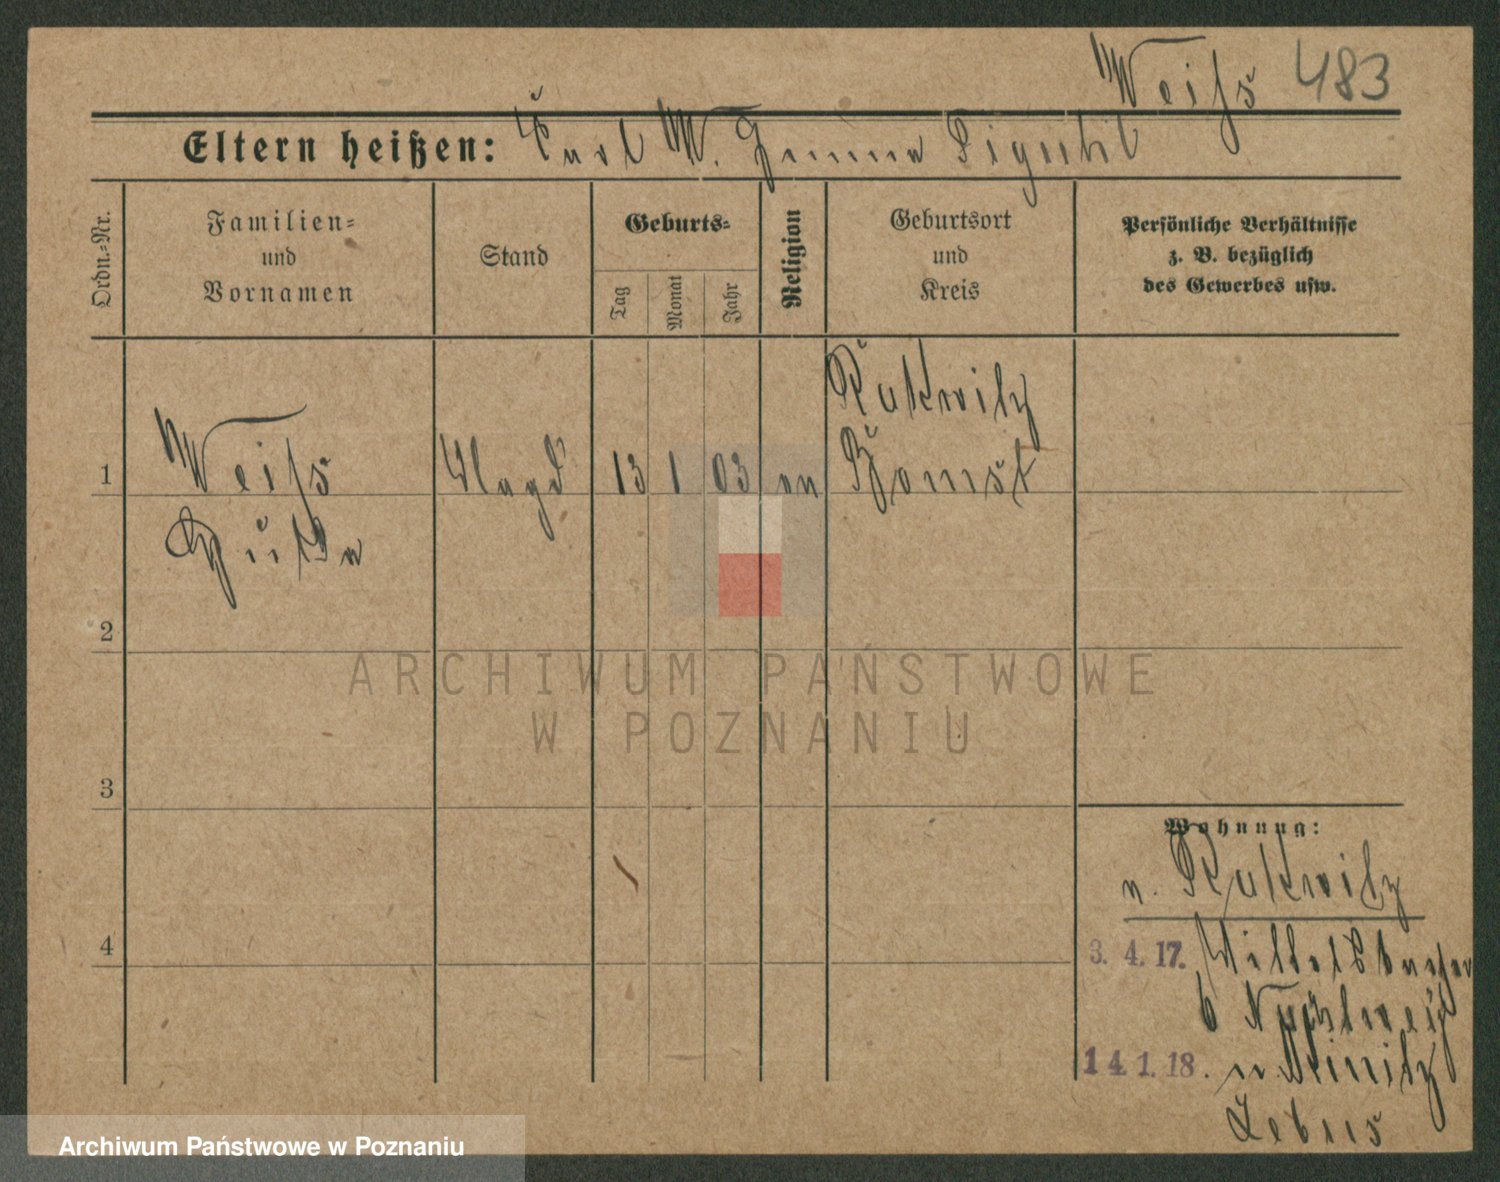 Weiß 483
Eltern heißen: Carl W. Emma
Ordn.-Nr.
Familien-
und
Vornamen
Stand
Geburts-
Tag
Monat
Jahr
Religion
Geburtsort
und
Kreis
Persönliche Verhältnisse
z. B. bezüglich
des Gewerbes usw.
Rakwitz
1 Weiß Magd 13 1 03 ev Bomst
2
ARCHIWUM PAŃSTWOWE
W POZNANIU
3
Wohnung:
n. Rakwitz
4
3. 4. 17.
6
14. 1. 18. n
Lebus
Archiwum Państwowe w Poznaniu